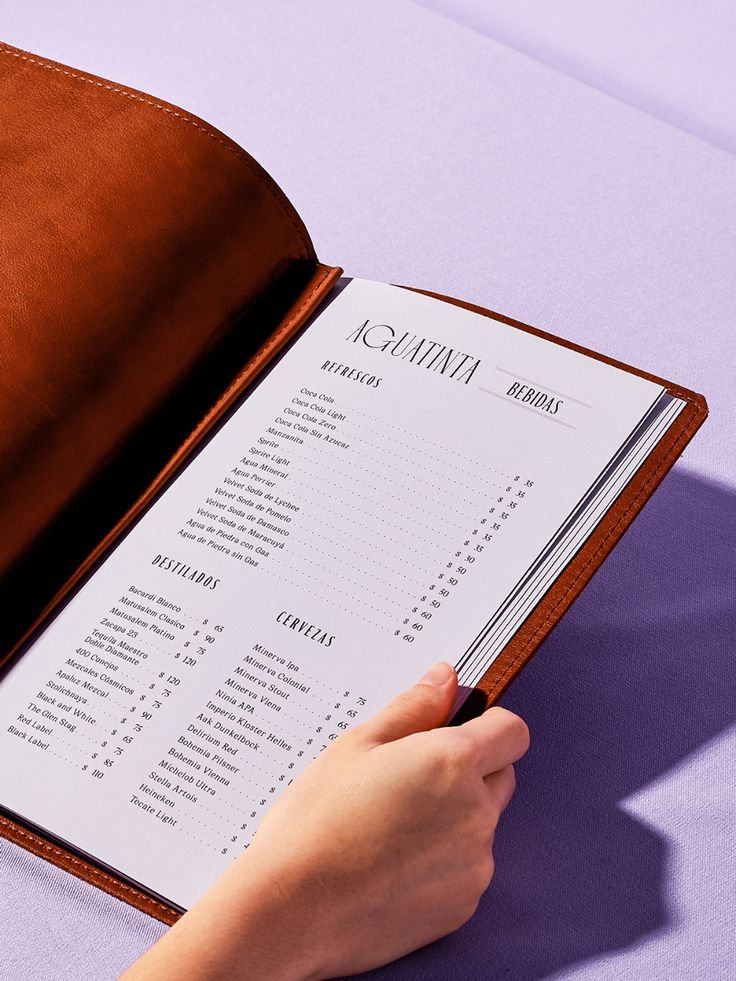 AGUATINTA
BEBIDAS
REFRESCOS
Coca Cola $ 35
Coca Cola Light $ 35
Coca Cola Zero $ 35
Coca Cola Sin Azucar $ 35
Manzanita $ 35
Sprite $ 35
Sprite Light $ 35
Agua Mineral $ 30
Agua Perrier $ 50
Velvet Soda de Lychee $ 50
Velvet Soda de Pomelo $ 50
Velvet Soda de Damasco $ 50
Velvet Soda de Maracuyá $ 60
Agua de Piedra con Gas $ 60
Agua de Piedra sin Gas $ 60
DESTILADOS
Bacardi Blanco $ 65
Matusalem Clasico $ 90
Matusalem Platino $ 75
Zacapa 23 $ 120
Tequila Maestro
Doble Diamante $ 120
400 Conejos $ 75
Mezcales Cósmicos $ 75
Apaluz Mezcal $ 90
Stolichnaya $ 75
Black and White $ 65
The Glen Stag $ 75
Red Label $ 85
Black Label $ 110
CERVEZAS
Minerva Ipa $ 75
Minerva Colonial $ 65
Minerva Stout $ 65
Minerva Viena $ 65
Ninia APA $ 75
Imperio Kloster Helles $
Aak Dunkelbock $
Delirium Red $
Bohemia Pilsner $
Bohemia Vienna $
Michelob Ultra $
Stella Artois $
Heineken $
Tecate Light $